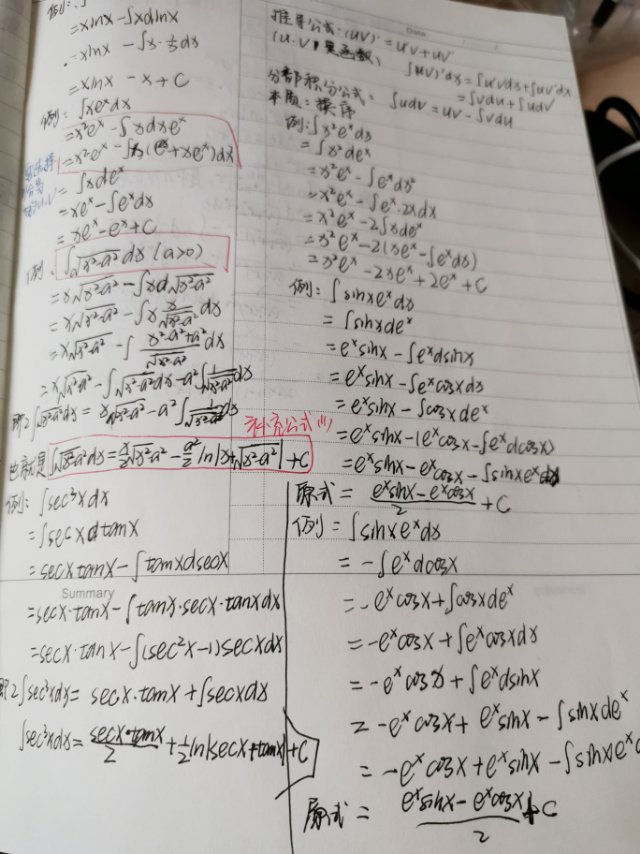 例:
=xlnx-∫xdlnx
=xlnx-∫x·1/x dx
=xlnx-x+C
例: ∫xe^x dx
=x²e^x-∫xdxe^x
=x²e^x-∫x(e^x+xe^x)dx
=∫xde^x
=xe^x-∫e^x dx
=xe^x-e^x+C
例: ∫√(x²-a²) dx (a>0)
=x√(x²-a²)-∫xd√(x²-a²)
=x√(x²-a²)-∫x x/√(x²-a²) dx
=x√(x²-a²)-∫(x²-a²+a²)/√(x²-a²) dx
=x√(x²-a²)-∫√(x²-a²)dx-a²∫1/√(x²-a²) dx
即2∫√(x²-a²)dx=x√(x²-a²)-a²∫1/√(x²-a²) dx
补充公式(1)
也就是∫√(x²-a²)dx=x/2√(x²-a²)-a²/2 ln|x+√(x²-a²)|+C
例: ∫sec³xdx
=∫secxdtanx
=secxtanx-∫tanxdsecx
Summary
=secx·tanx-∫tanx·secx·tanxdx
=secx·tanx-∫(sec²x-1)secxdx
即2∫sec³xdx=secx·tanx+∫secxdx
∫sec³xdx=secx·tanx/2+1/2 ln|secx+tanx|+C
Date
推导公式:(uv)'=u'v+uv'
(u·v是函数) ∫(uv)'dx=∫u'vdx+∫uv'dx
=∫vdu+∫udv
分部积分公式: ∫udv=uv-∫vdu
本质:换序
例:∫x²e^x dx
=∫x²de^x
=x²e^x-∫e^x dx²
=x²e^x-∫e^x·2xdx
=x²e^x-2∫xde^x
=x²e^x-2(xe^x-∫e^x dx)
=x²e^x-2xe^x+2e^x+C
例:∫sinxe^x dx
=∫sinxde^x
=e^x sinx-∫e^x dsinx
=e^x sinx-∫e^x cosxdx
=e^x sinx-∫cosxde^x
=e^x sinx-(e^x cosx-∫e^x dcosx)
=e^x sinx-e^x cosx-∫sinxe^x dx
原式=(e^x sinx-e^x cosx)/2+C
例=∫sinxe^x dx
=-∫e^x dcosx
=-e^x cosx+∫cosxde^x
=-e^x cosx+∫e^x cosxdx
=-e^x cosx+∫e^x dsinx
=-e^x cosx+e^x sinx-∫sinxde^x
=-e^x cosx+e^x sinx-∫sinxe^x
原式=(e^x sinx-e^x cosx)/2+C